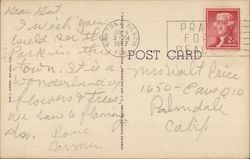 Dear Dot,
I wish you
could see the
Park in this
town; It is a
wonderland of
flowers & trees
we saw 6 flamin
Love
Carmen
POST CARD
PRAY
FOR
PEACE
Mrs Walt Price
1650 - E Ave Q10
Palmdale
Calif